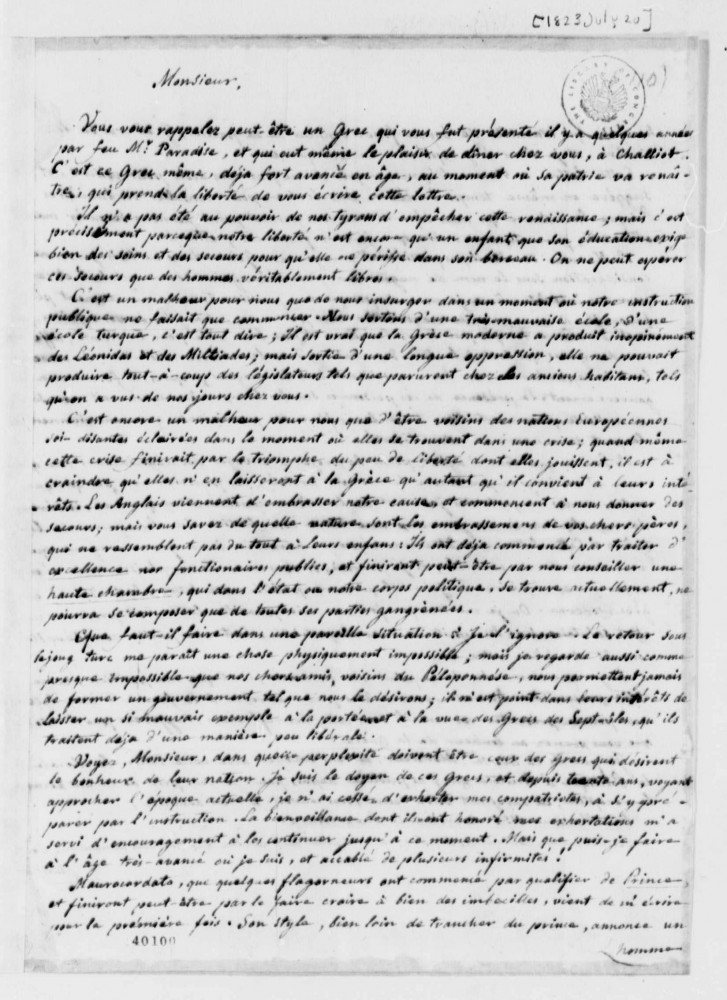 [1823 July 20]
Monsieur,
Vous vous rappelez peut-être un Grec qui vous fut présenté il y a quelques années
par feu Mr. Paradise, et qui eut même le plaisir de dîner chez vous, à Challiot.
C'est ce Grec même, deja fort avancé en âge, au moment où sa patrie va renaî-
tre, qui prend la liberté de vous écrire cette lettre.
Il n'a pas été au pouvoir de nos tyrans d'empêcher cette renaissance; mais c'est
précisément parceque notre liberté n'est encore qu'un enfant, que son éducation exige
bien des soins et des secours pour qu'elle ne périsse dans son berceau. On ne peut espérer
ces secours que des hommes véritablement libres.
C'est un malheur pour nous que de nous insurger dans un moment où notre instruction
publique ne faisait que commencer. Nous sortons d'une très-mauvaise école, d'une
école turque, c'est tout dire; Il est vrai que la Grèce moderne a produit inopinément
des Léonidas et des Milthiades; mais sortie d'une longue oppression, elle ne pouvait
produire tout-à-coup des législateurs tels que parurent chez les anciens habitans, tels
qu'on a vus de nos jours chez vous.
C'est encore un malheur pour nous que d'être voisins des nations Européennes
soi-disantes éclairées dans le moment où elles se trouvent dans une crise; quand même
cette crise finirait par le triomphe du peu de liberté dont elles jouissent, il est à
craindre qu'elles n'en laisseront à la Grèce qu'autant qu'il convient à leurs inté-
rêts. Les Anglais viennent d'embrasser notre cause, et commencent à nous donner des
secours; mais vous savez de quelle nature sont les embrassemens de vos chers pères,
qui ne ressemblent pas du tout à leurs enfans: Ils ont déja commencé par traiter d'
excellence nos fonctionaires publics, et finiront peut-être par nous conseiller une
haute chambre, qui dans l'état où notre corps politique se trouve actuellement, ne
pourra se composer que de toutes ses parties gangrénées.
Que faut-il faire dans une pareille situation? Je l'ignore. Le retour sous
le joug turc me paraît une chose physiquement impossible; mais je regarde aussi comme
presque impossible que nos chers amis, voisins du Péloponnèse, nous permettent jamais
de former un gouvernement tel que nous le désirons; il n'est point dans leurs intérêts de
laisser un si mauvais exemple à la portée et à la vue des Grecs des Sept-îles, qu'ils
traitent deja d'une manière peu libérale.
Voyez, Monsieur, dans quelle perplexité doivent être ceux des Grecs qui désirent
le bonheur de leur nation. Je suis le doyen de ces Grecs, et depuis trente ans, voyant
approcher l'époque actuelle, je n'ai cessé d'exhorter mes compatriotes, à s'y pré-
parer par l'instruction. La bienveillance dont ils ont honoré mes exhortations m'a
servi d'encouragement à les continuer jusqu'à ce moment. Mais que puis-je faire
à l'âge très-avancé où je suis, et accablé de plusieurs infirmités!
Maurocordato, que quelques flagorneurs ont commencé par qualifier de Prince,
et finiront peut-être par le faire croire à bien des imbecilles, vient de m'écrire
pour la première fois. Son style, bien loin de trancher du prince, annonce un
homme
40100